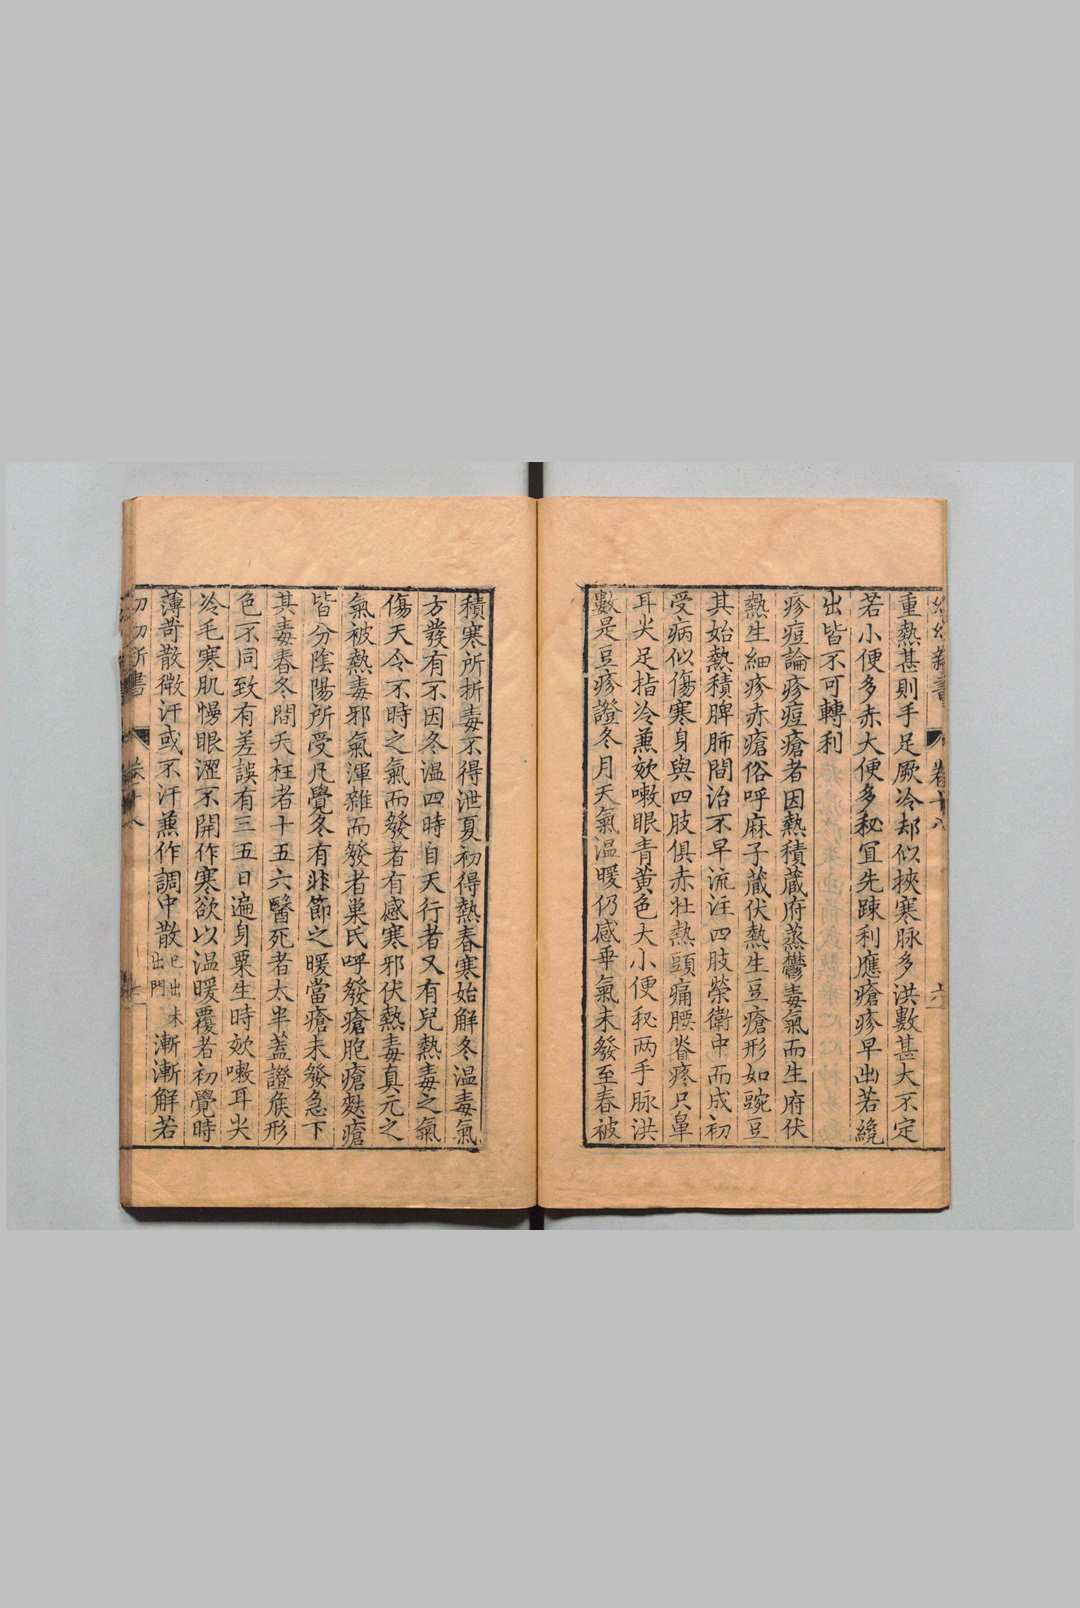 幼幼新書 卷十八 六
重熱甚則手足厥冷却似挾寒脉多洪數甚大不定
若小便多赤大便多秘冝先踈利應瘡疹早出若纔
出皆不可轉利
疹痘論疹痘瘡者因熱積蔵府蒸鬱毒氣而生府伏
熱生細疹赤瘡俗呼麻子蔵伏熱生豆瘡形如豌豆
其始熱積脾肺間治不早流注四肢榮衛中而成初
受病似傷寒身與四肢俱赤壮熱頭痛腰脊疼只鼻
耳尖足指冷兼欬嗽眼青黄色大小便秘两手脉洪
數是豆疹證冬月天氣温暖仍感乖氣未發至春被
積寒所折毒不得泄夏初得熱春寒始解冬温毒氣
方發有不因冬温四時自天行者又有兒熱毒之氣
傷天令不時之氣而發者有感寒邪伏熱毒真元之
氣被熱毒邪氣渾雜而發者巢氏呼發瘡胞瘡麩瘡
皆分陰陽所受凡覺冬有非節之暖當瘡未發急下
其毒春冬間夭枉者十五六醫死者太半蓋證候形
色不同致有差誤有三五日遍身粟生時欬嗽耳尖
冷毛寒肌慢眼澀不開作寒欲以温暖覆者初覺時
薄荷散微汗或不汗兼作調中散已出未出門漸漸解若
幼幼新書 卷十八